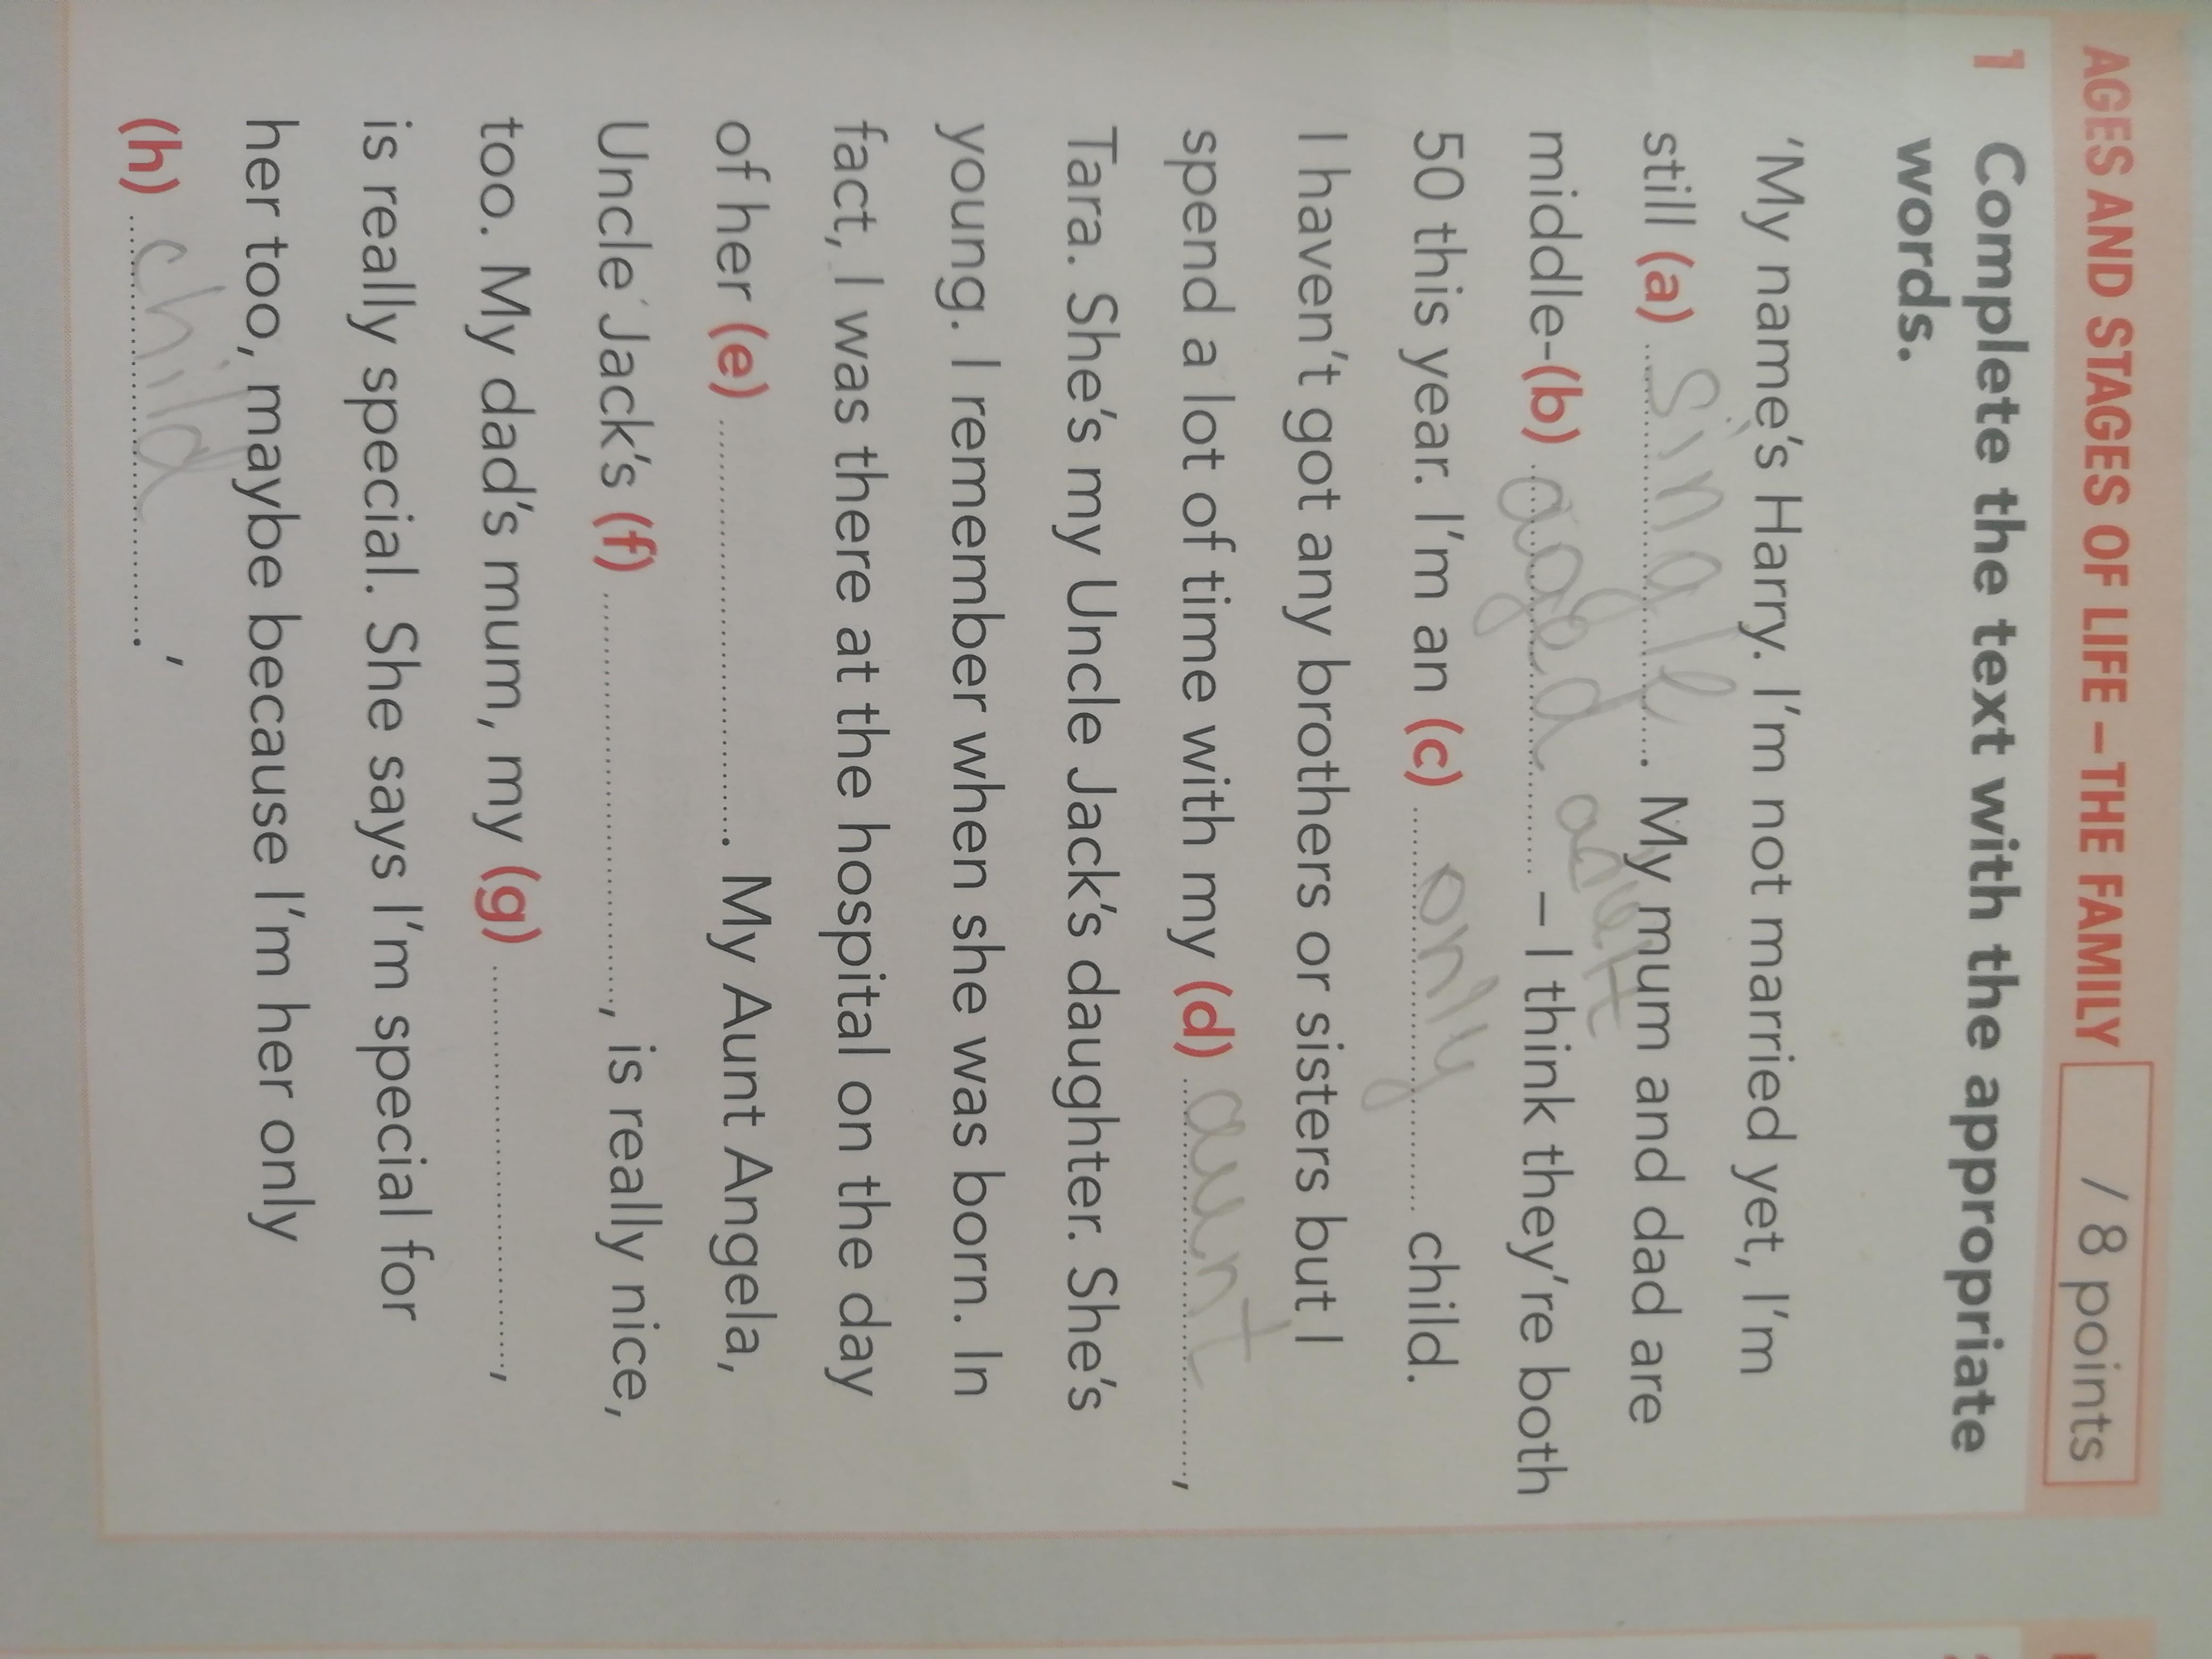 AGES AND STAGES OF LIFE – THE FAMILY / 8 points
1 Complete the text with the appropriate
words.
'My name's Harry. I'm not married yet, I'm
still (a) single. My mum and dad are
middle-(b) aged adult – I think they're both
50 this year. I'm an (c) only child.
I haven't got any brothers or sisters but I
spend a lot of time with my (d) aunt,
Tara. She's my Uncle Jack's daughter. She's
young. I remember when she was born. In
fact, I was there at the hospital on the day
of her (e) .......... . My Aunt Angela,
Uncle Jack's (f) .........., is really nice,
too. My dad's mum, my (g) ..........,
is really special. She says I'm special for
her too, maybe because I'm her only
(h) child.'